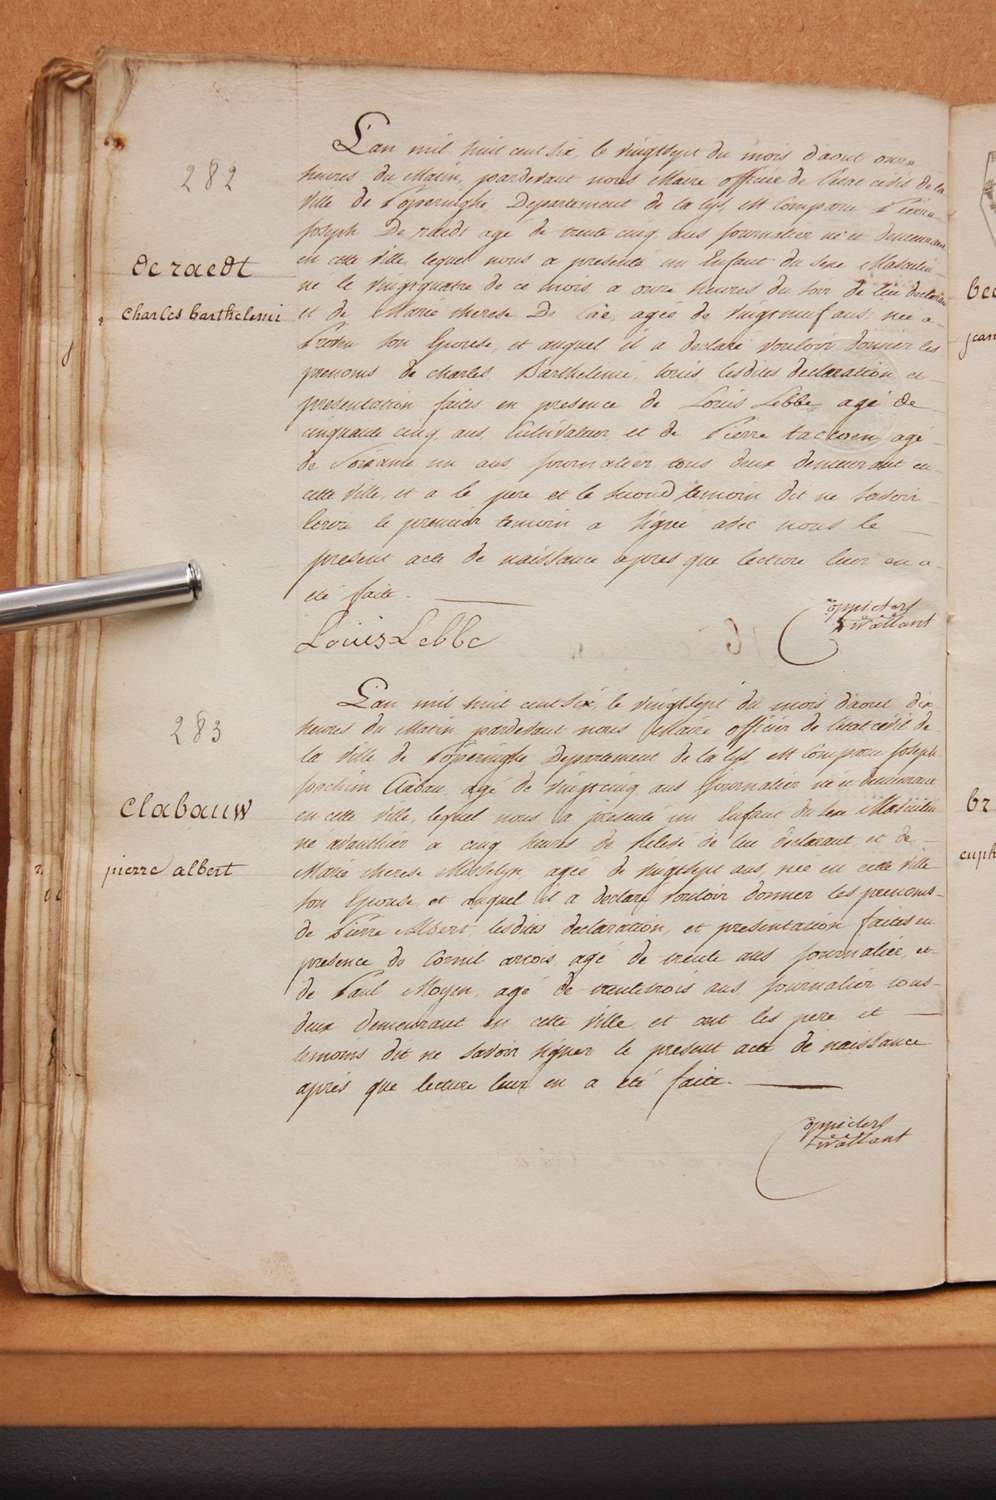 282
de raedt
charles barthelemi
L'an mil huit cent six, le vingtsept du mois d'aout onze
heures du Matin, pardevant nous Maire officier de l'etat civil de la
Ville de Poperinghe Departement de la Lys, est Comparu Pierre
Joseph De raedt agé de trente cinq ans journalier né et demeurant
en cette Ville, lequel nous a presenté un Enfant du sexe Masculin
né le vingtquatre de ce mois a onze heures du soir de lui declarant
et de Marie therese De agée de vingtneuf ans née a
son Epouse, et auquel il a declaré vouloir donner les
prenoms de charles Barthelemi, tous lesdites declaration et
presentation faites en presence de Louis Lebbe agé de
cinquante cinq ans Cultivateur et de Pierre taccoen agé
de Soixante un ans journalier tous deux demeurant en
cette Ville, et a le pere et le second temoin dit ne savoir
le premier temoin a signé avec nous le
present acte de naissance apres que lecture leur en a
été faite.
Louis Lebbe
283
clabauw
pierre albert
L'an mil huit cent six, le vingtsept du mois d'aout dix
heures du Matin pardevant nous Maire officier de l'etat civil de
la Ville de Poperinghe Departement de la Lys, est Comparu Joseph
Joachim Clabau, agé de vingtcinq ans journalier né et demeurant
en cette Ville, lequel nous a presenté un Enfant du sexe Masculin
né avanthier a cinq heures de de lui declarant et de
Marie therese agée de vingtsept ans, née en cette Ville
son Epouse, et auquel il a declaré vouloir donner les prenoms
de Pierre Albert, lesdites declaration, et presentation faites en
presence de Cornil arcois, agé de trente ans journalier, et
de Paul Moyen, agé de trentetrois ans journalier tous
deux demeurant en cette Ville et ont les pere et
temoins dit ne savoir signer le present acte de naissance
aprés que lecture leur en a été faite.